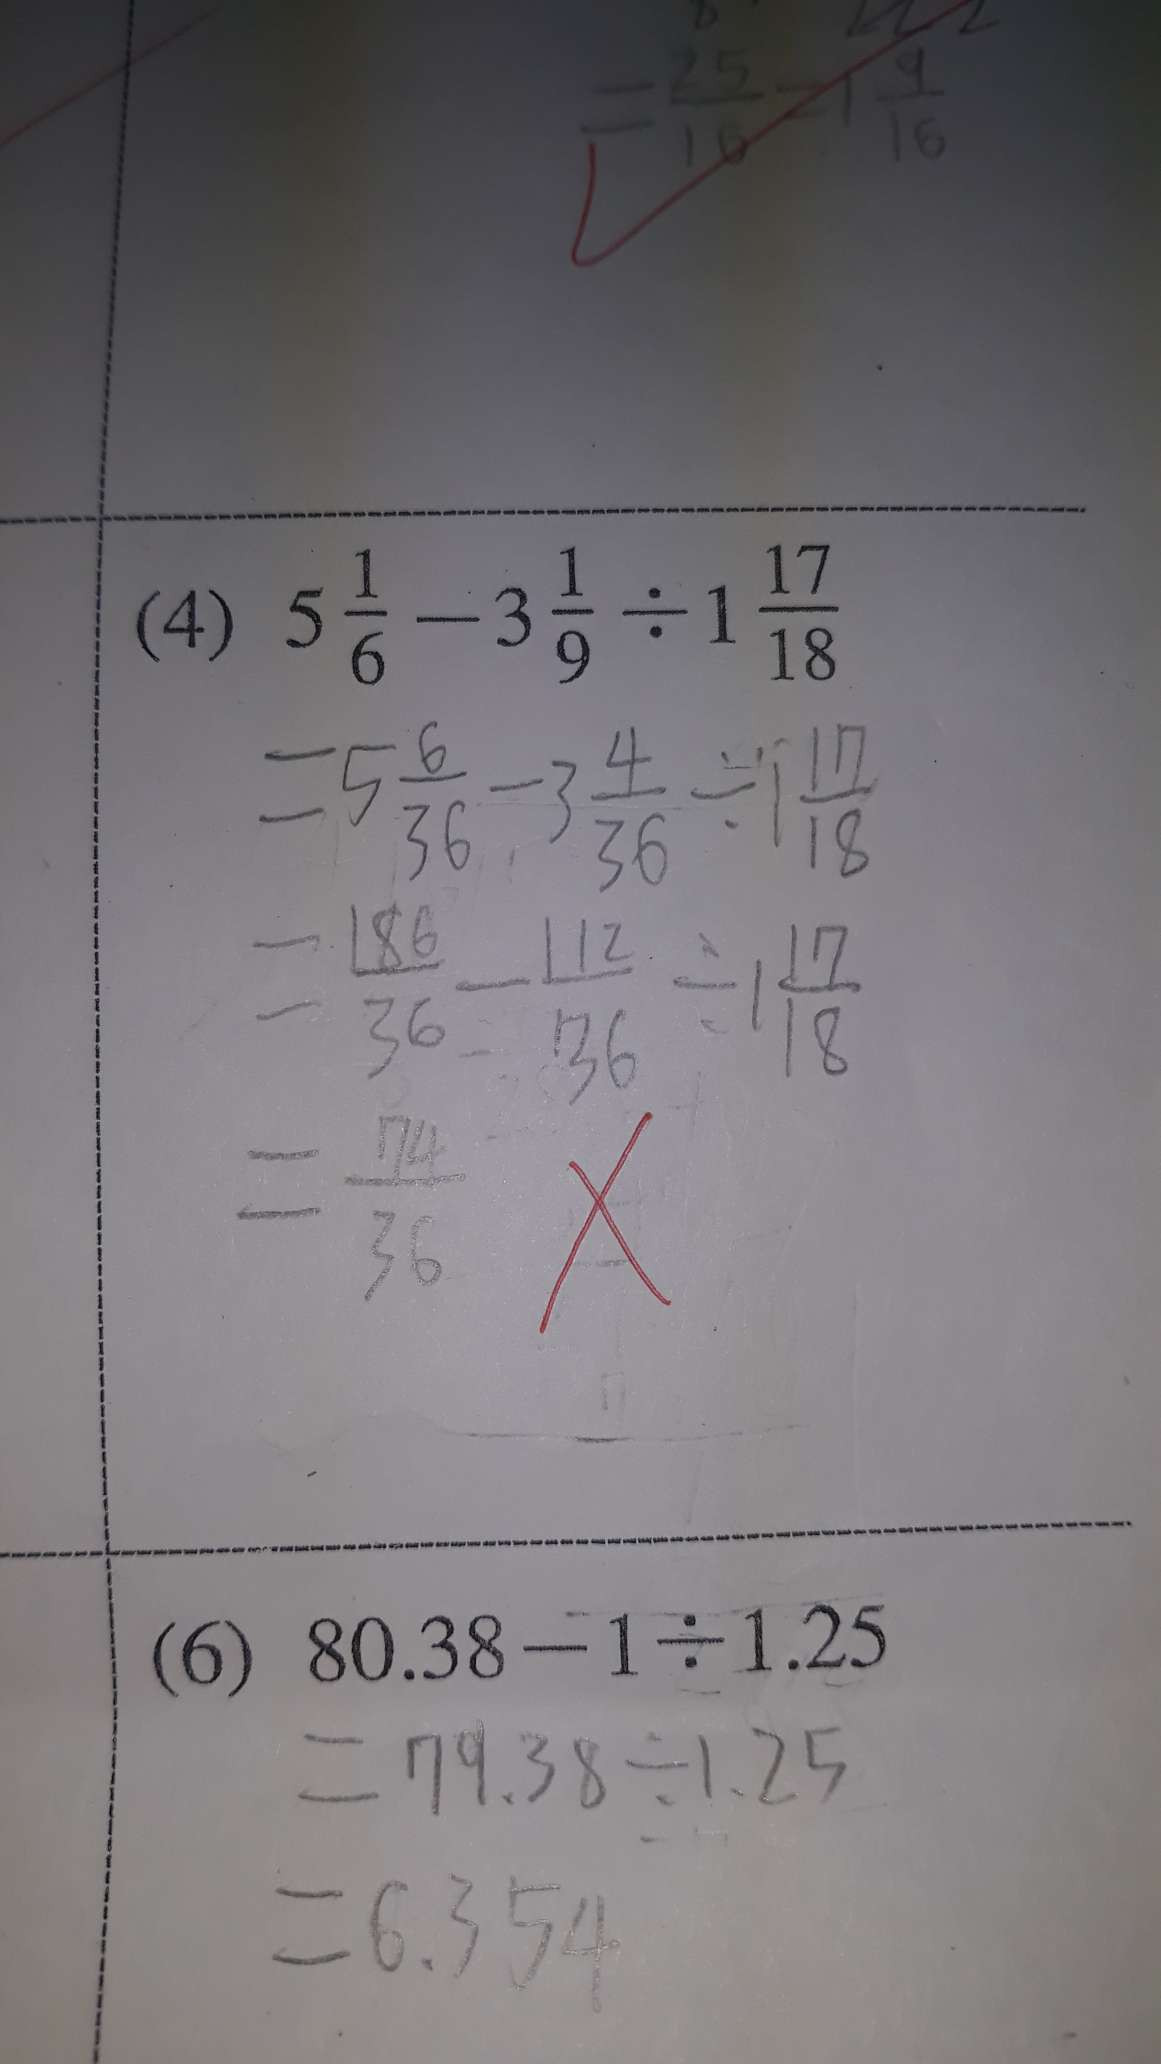 = 25/16 = 1 9/16
(4) 5 1/6 − 3 1/9 ÷ 1 17/18
= 5 6/36 − 3 4/36 ÷ 1 17/18
= 186/36 − 112/36 ÷ 1 17/18
= 74/36
(6) 80.38 − 1 ÷ 1.25
= 79.38 ÷ 1.25
= 6.354